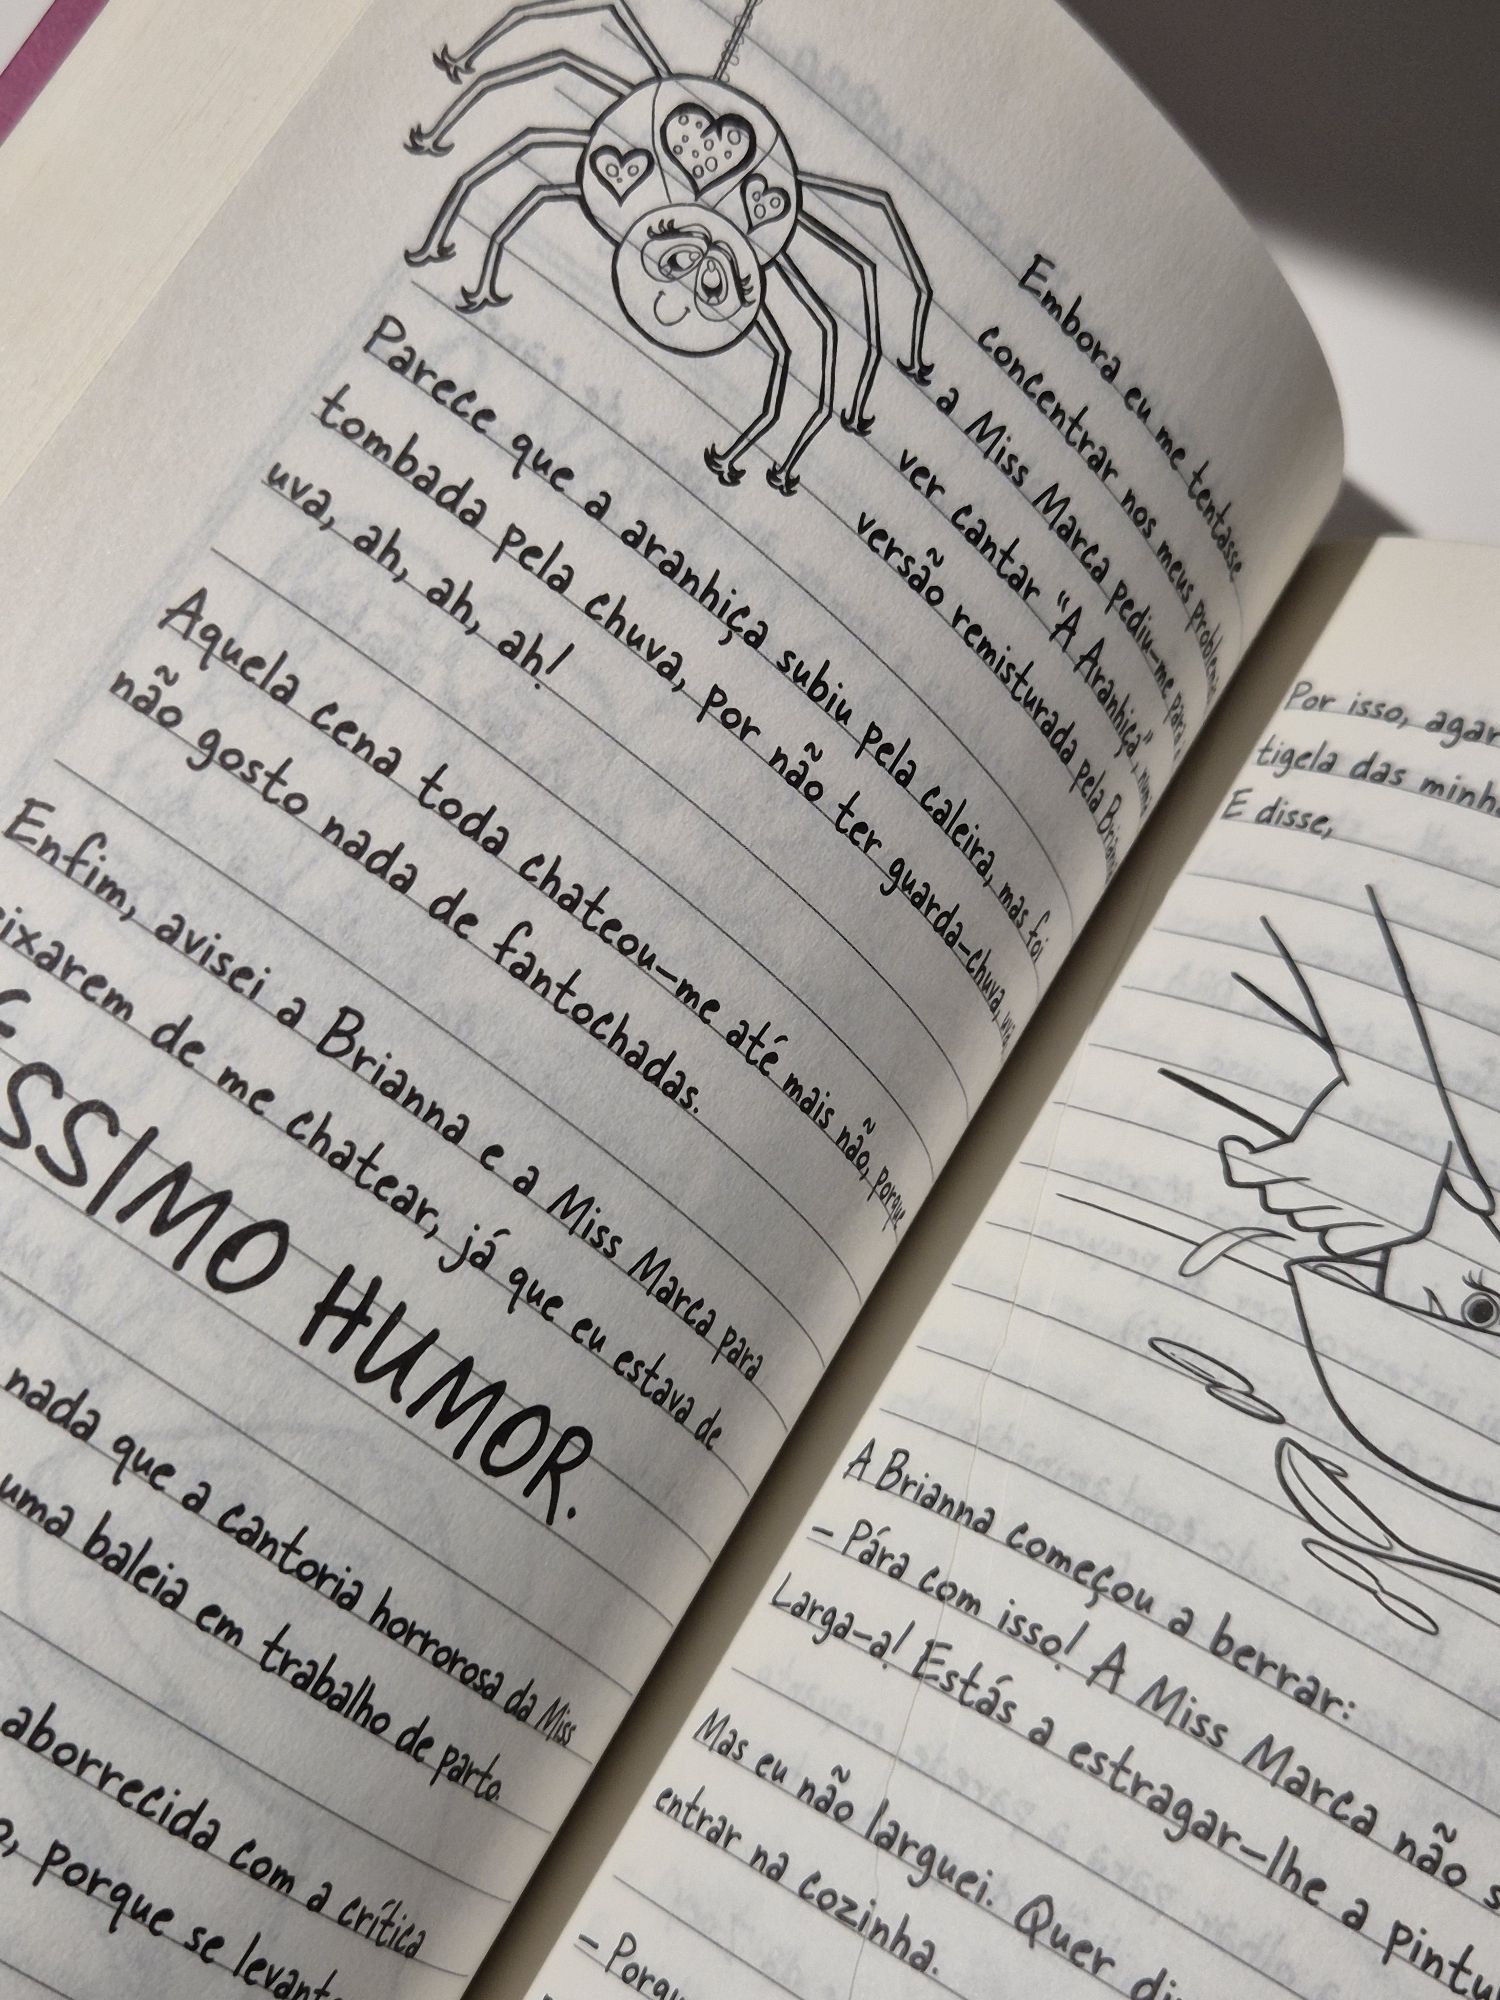 Embora eu me tentasse
concentrar nos meus problemas
a Miss Marca pediu-me para a
ver cantar "A Aranhiça", numa
versão remisturada pela Brianna
Parece que a aranhiça subiu pela caleira, mas foi
tombada pela chuva, por não ter guarda-chuva,
uva, ah, ah, ah!
Aquela cena toda chateou-me até mais não, porque
não gosto nada de fantochadas.
Enfim, avisei a Brianna e a Miss Marca para
eixarem de me chatear, já que eu estava de
SSIMO HUMOR.
nada que a cantoria horrorosa da Miss
uma baleia em trabalho de parto.
aborrecida com a crítica
o, porque se levant
Por isso, agar
tigela das minh
E disse,
A Brianna começou a berrar:
– Pára com isso! A Miss Marca não s
Larga-a! Estás a estragar-lhe a pintu
Mas eu não larguei. Quer di
entrar na cozinha.
– Porqu